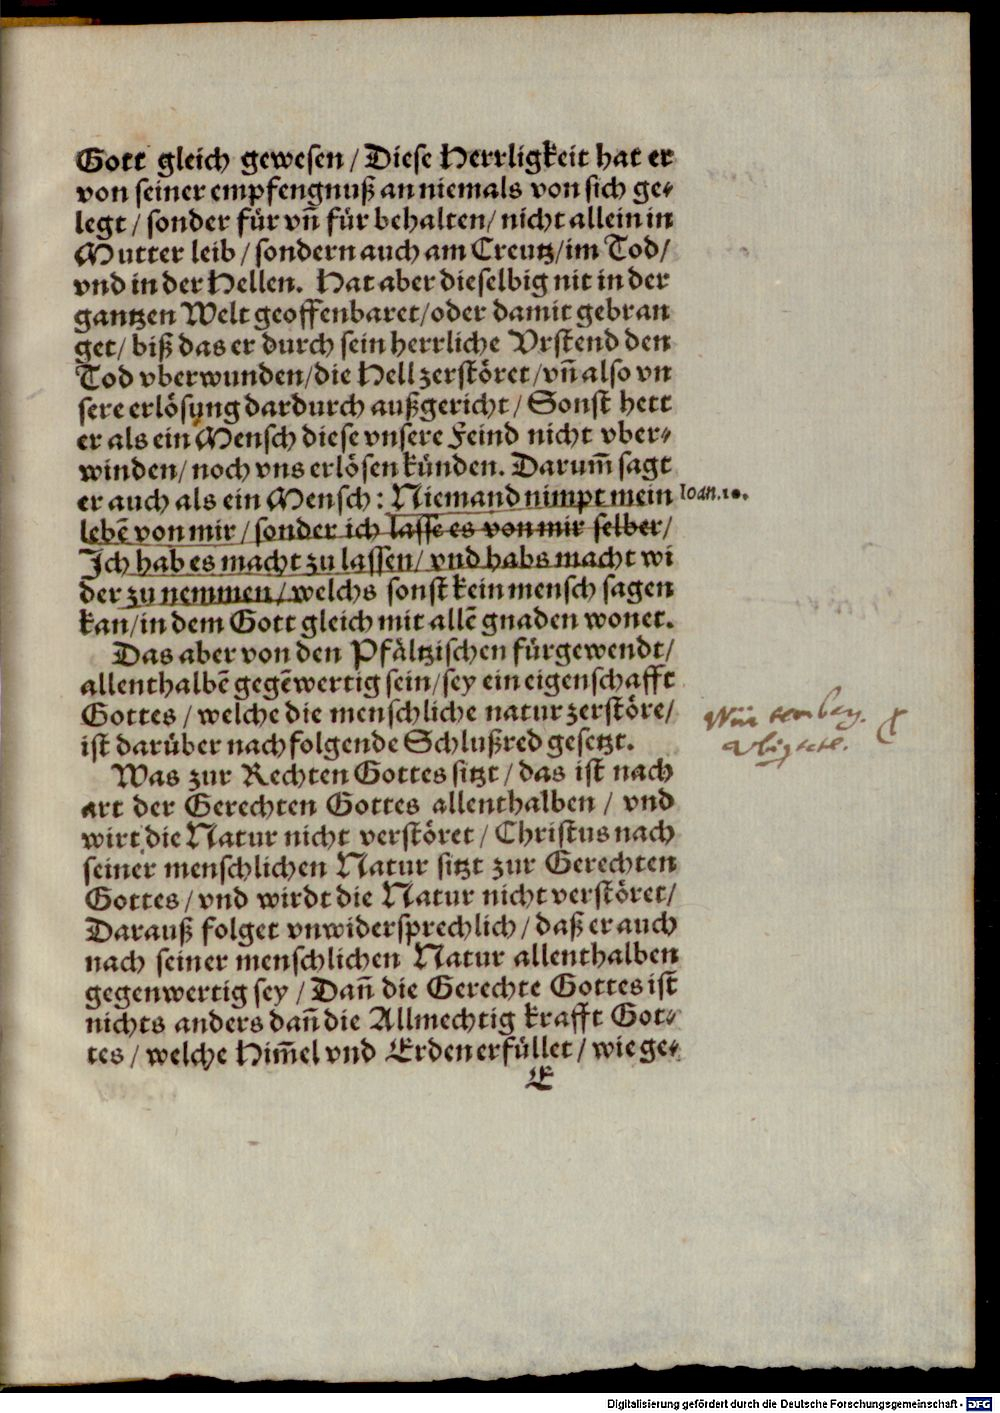 Gott gleich gewesen / Diese Herrligkeit hat er
von seiner empfengnuß an niemals von sich ge-
legt / sonder für vñ für behalten / nicht allein in
Mutter leib / sondern auch am Creutz / im Tod /
vnd in der Hellen. Hat aber dieselbig nit in der
gantzen Welt geoffenbaret / oder damit gebran
get / biß das er durch sein herrliche Vrstend den
Tod vberwunden / die Hell zerstöret / vñ also vn
sere erlösung dardurch außgericht / Sonst hett
er als ein Mensch diese vnsere Feind nicht vber-
winden / noch vns erlösen künden. Darum̃ sagt
er auch als ein Mensch : Niemand nimpt mein Ioan. 10.
lebẽ von mir / sonder ich lasse es von mir selber /
Ich hab es macht zu lassen / vnd habs macht wi
der zu nemmen / welchs sonst kein mensch sagen
kan / in dem Gott gleich mit allẽ gnaden wonet.
Das aber von den Pfältzischen fürgewendt /
allenthalbẽ gegẽwertig sein / sey ein eigenschafft
Gottes / welche die menschliche natur zerstöre /
ist darüber nachfolgende Schlußred gesetzt.
Was zur Rechten Gottes sitzt / das ist nach
art der Gerechten Gottes allenthalben / vnd
wirt die Natur nicht verstöret / Christus nach
seiner menschlichen Natur sitzt zur Gerechten
Gottes / vnd wirdt die Natur nicht verstöret /
Darauß folget vnwidersprechlich / daß er auch
nach seiner menschlichen Natur allenthalben
gegenwertig sey / Dañ die Gerechte Gottes ist
nichts anders dañ die Allmechtig krafft Got-
tes / welche Him̃el vnd Erden erfüllet / wie ge-
E
Digitalisierung gefördert durch die Deutsche Forschungsgemeinschaft - DFG